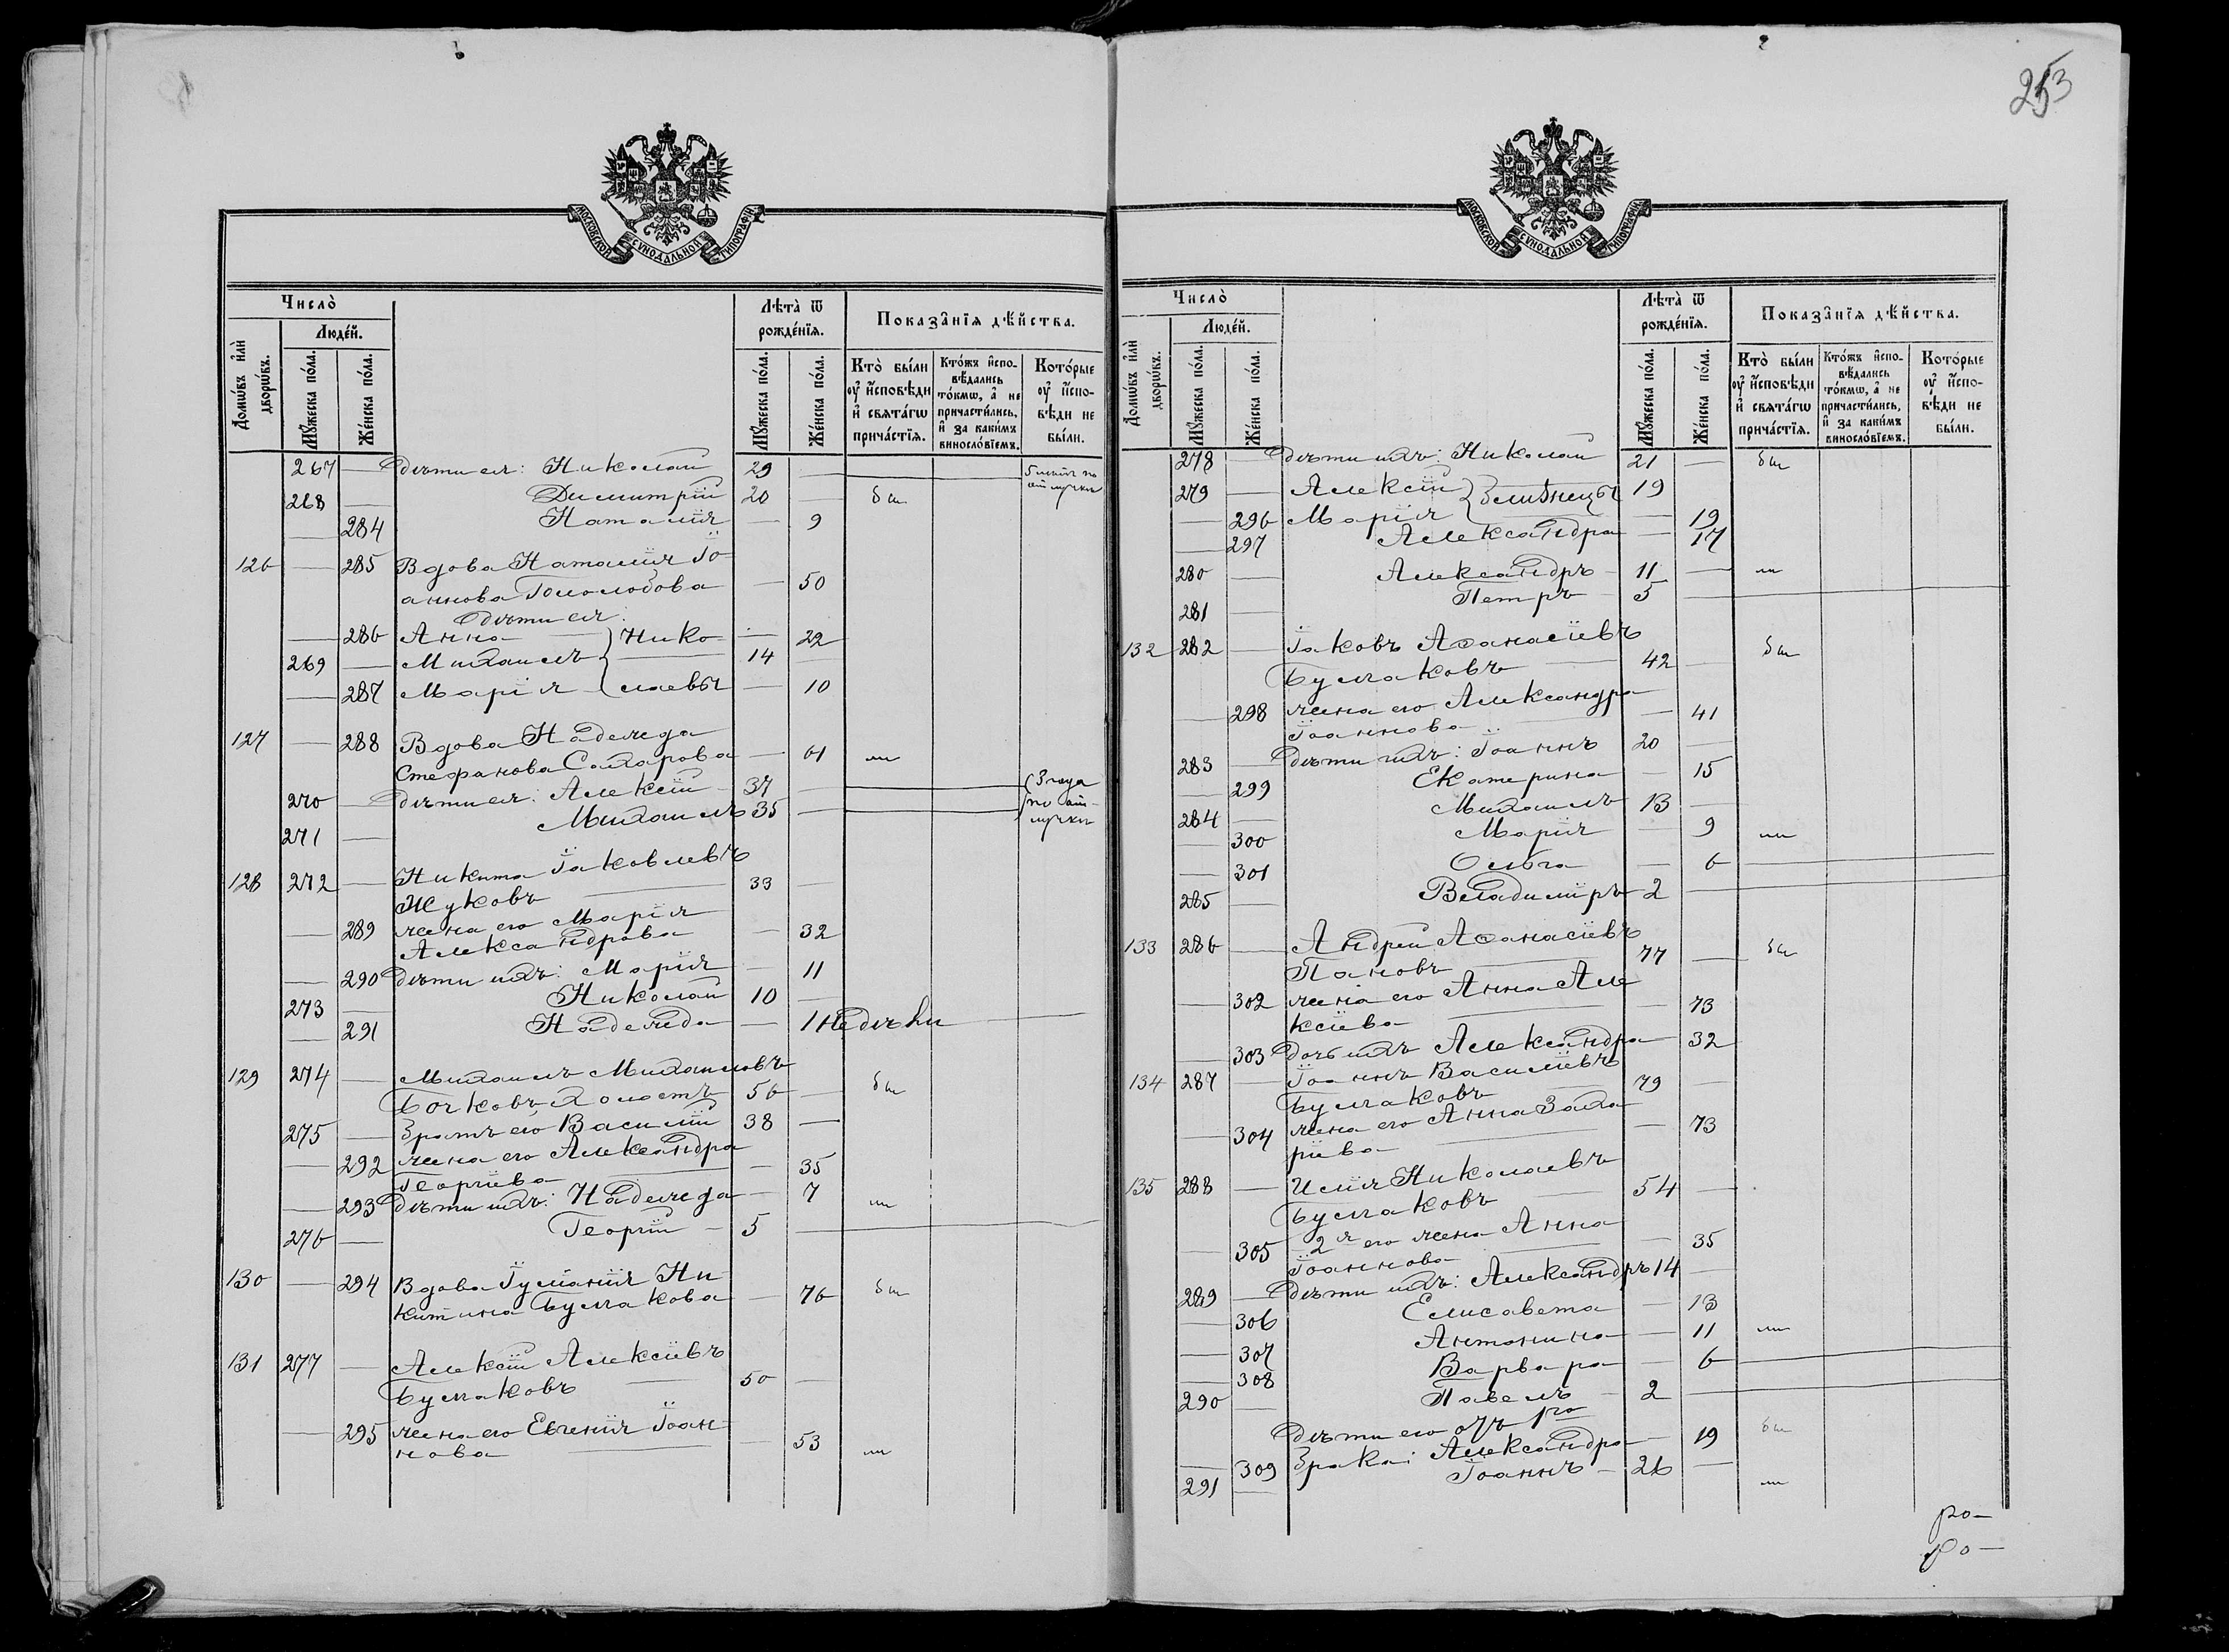 253
МОСКОВСКОЙ СѴНОДАЛЬНОЙ ТИПОГРАФІИ
Число̀
Людє́й.
Домѡ́въ и҆лѝ дворѡ́въ.
Мꙋ́жєска по́ла.
Жє́нска по́ла.
Лѣта̀ ѿ рождє́нїѧ.
Мꙋ́жєска по́ла.
Жє́нска по́ла.
Показа̑нїѧ дѣ́йства.
Кто̀ бы́ли оу҆ и҆́сповѣди и҆ свѧта́гѡ прича́стїѧ.
Кто́жъ и҆спо-вѣ́дались то́кмѡ, а҆ не причасти́лись, и҆ за каки́мъ винослѡ́вїемъ.
Кото́рые оу҆ и҆спо-вѣди не бы́ли.
267 — Дѣти ея: Николай 29 —
по отлучке
268 — Димитрій 20 — был
— 284 Наталія — 9
126 — 285 Вдова Наталія Іо
аннова Гололобова — 50
Дѣти ея:
— 286 Анна } Нико — 22
269 — Михаилъ 14 —
— 287 Марія } лаевы — 10
127 — 288 Вдова Надежда
Стефанова Сахарова — 61
270 — Дѣти ея: Алексій 37 — 3 года
271 — Михаилъ 35 — по от-
лучке
128 272 — Никита Іаковлевъ
Жуковъ 33 —
— 289 жена его Марія
Александрова — 32
— 290 Дѣти ихъ: Марія — 11
273 — Николай 10 —
— 291 Надежда — 1 недѣли
129 274 — Михаилъ Михаиловъ
Бочковъ холостъ 56 — был
275 — Братъ его Василій 38 —
— 292 жена его Александра
Георгіева — 35
— 293 Дѣти ихъ: Надежда — 7
276 — Георгій — 5
130 — 294 Вдова Іуліанія Ни-
китина Булгакова — 76
131 277 — Алексій Алексіевъ
Булгаковъ 50 —
— 295 жена его Евгенія Іоан-
нова 53
МОСКОВСКОЙ СѴНОДАЛЬНОЙ ТИПОГРАФІИ
Число̀
Людє́й.
Домѡ́въ и҆лѝ дворѡ́въ.
Мꙋ́жєска по́ла.
Жє́нска по́ла.
Лѣта̀ ѿ рождє́нїѧ.
Мꙋ́жєска по́ла.
Жє́нска по́ла.
Показа̑нїѧ дѣ́йства.
Кто̀ бы́ли оу҆ и҆́сповѣди и҆ свѧта́гѡ прича́стїѧ.
Кто́жъ и҆спо-вѣ́дались то́кмѡ, а҆ не причасти́лись, и҆ за каки́мъ винослѡ́вїемъ.
Кото́рые оу҆ и҆спо-вѣди не бы́ли.
278 — Дѣти ихъ: Николай 21 — был
279 — Алексій } близнецы 19
— 296 Марія — 19
— 297 Александра — 17
280 — Александръ — 11 —
281 — Петръ — 5
132 282 — Іаковъ Аѳанасіевъ
Булгаковъ 42 — был
— 298 жена его Александра
Іоаннова — 41
283 — Дѣти ихъ: Іоаннъ 20 —
— 299 Екатерина — 15
284 — Михаилъ 13 —
— 300 Марія — 9
— 301 Ольга — 6
285 — Владиміръ 2
133 286 — Андрей Аѳанасіевъ
Пановъ 77 — был
— 302 жена его Анна Але
ксіева — 73
— 303 Дочь ихъ Александра — 32
134 287 — Іоаннъ Василіевъ
Булгаковъ 79 —
— 304 жена его Анна Заха
ріева — 73
135 288 — Илія Николаевъ
Булгаковъ 54 —
— 305 2я его жена Анна
Іоаннова — 35
289 — Дѣти ихъ: Александръ 14 —
— 306 Елисавета — 13
— 307 Антонина — 11
— 308 Варвара — 6
290 — Павелъ — 2
Дѣти его отъ 1го
— 309 Брака: Александра — 19 был
291 — Іоаннъ — 26 —